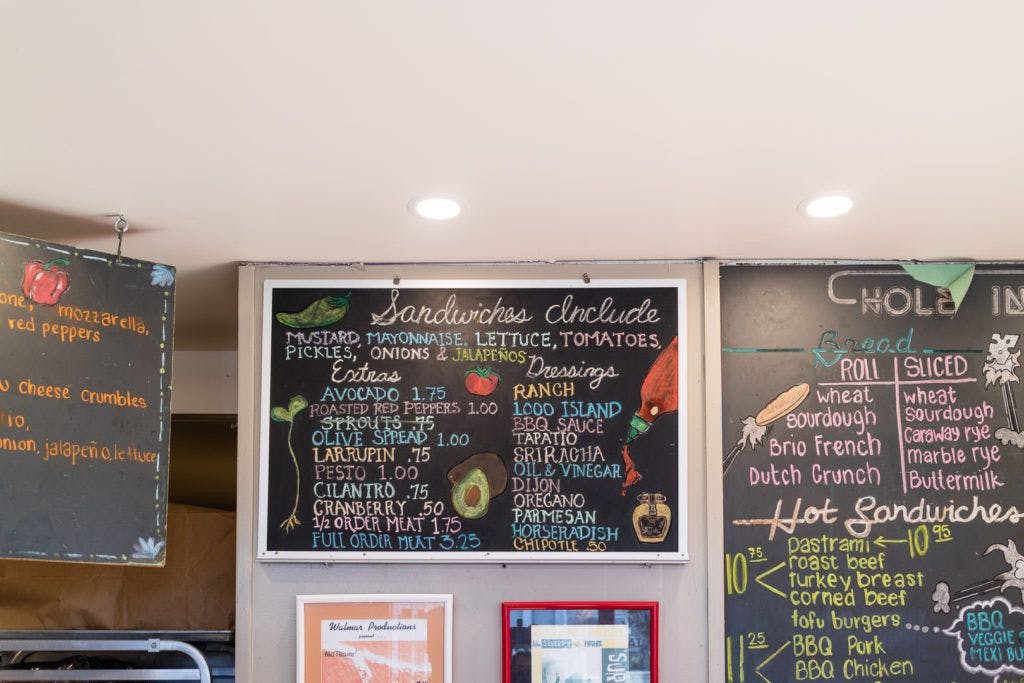 mozzarella,
red peppers
cheese crumbles
onion, jalapeño, lettuce
Sandwiches Include
MUSTARD, MAYONNAISE, LETTUCE, TOMATOES,
PICKLES, ONIONS & JALAPEÑOS
Extras
AVOCADO 1.75
ROASTED RED PEPPERS 1.00
SPROUTS .75
OLIVE SPREAD 1.00
LARRUPIN .75
PESTO 1.00
CILANTRO .75
CRANBERRY .50
1/2 ORDER MEAT 1.75
FULL ORDER MEAT 3.25
Dressings
RANCH
1000 ISLAND
BBQ SAUCE
TAPATIO
SRIRACHA
OIL & VINEGAR
DIJON
OREGANO
PARMESAN
HORSERADISH
CHIPOTLE .50
Walmar Productions
present...
HOLE IN
Bread
ROLL
wheat
sourdough
Brio French
Dutch Crunch
SLICED
wheat
sourdough
Caraway rye
marble rye
Buttermilk
Hot Sandwiches
pastrami 10.95
10.75
roast beef
turkey breast
corned beef
tofu burgers
11.25
BBQ Pork
BBQ Chicken
BBQ
VEGGIE
MEXI